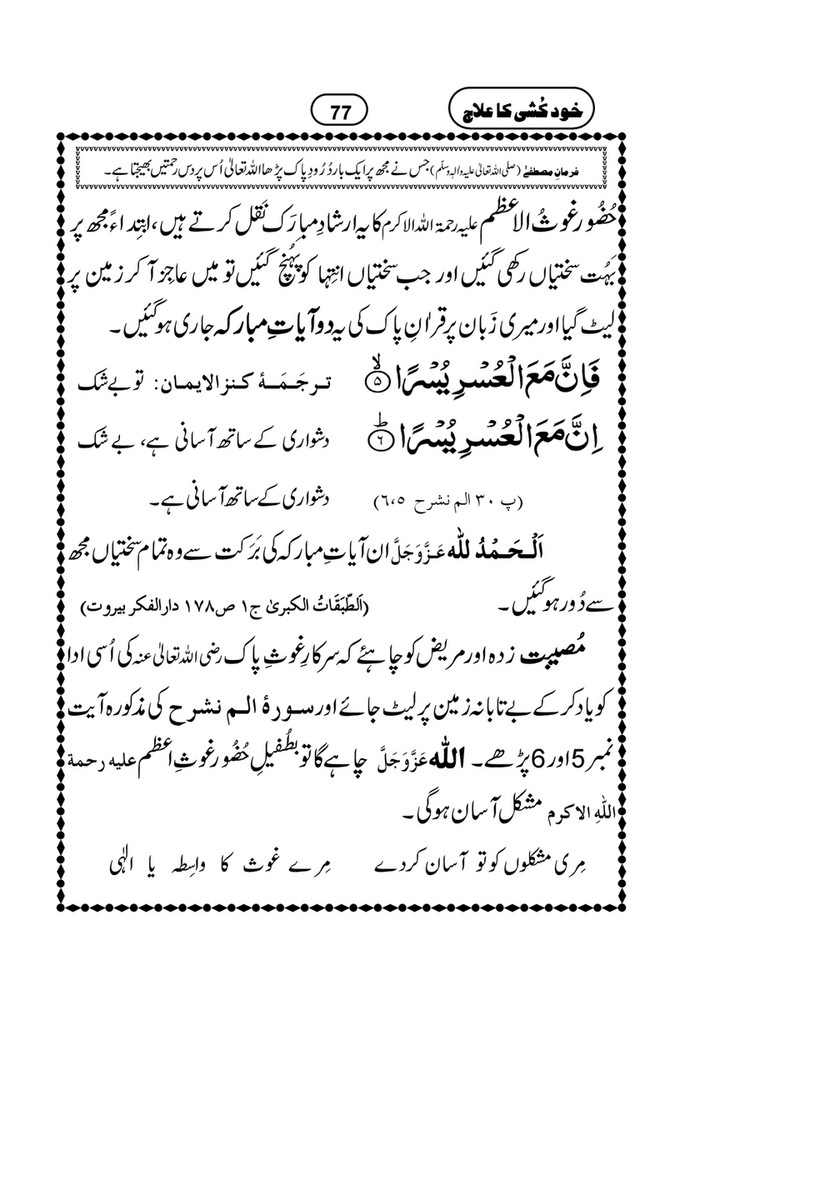 خود کُشی کا علاج
77
فرمانِ مصطفےٰ (صلی اللہ تعالیٰ علیہ واٰلہٖ وسلّم) جس نے مجھ پر ایک بار دُرُودِ پاک پڑھا اللہ تعالیٰ اُس پر دس رحمتیں بھیجتا ہے۔
حُضُور غوثُ الاعظم علیہ رحمۃ اللہ الاکرم کا یہ ارشادِ مبارَک نَقل کرتے ہیں، ابتِداءً مجھ پر
بَہُت سختیاں رکھی گئیں اور جب سختیاں انتِہا کو پَہُنچ گئیں تو میں عاجِز آ کر زمین پر
لیٹ گیا اور میری زَبان پر قراٰنِ پاک کی یہ دو آیاتِ مبارکہ جاری ہو گئیں۔
فَاِنَّ مَعَ الْعُسْرِ یُسْرًا ۙ﴿۵﴾ ترجَمَۂ کنزالایمان: تو بے شک
اِنَّ مَعَ الْعُسْرِ یُسْرًا ؕ﴿۶﴾ دشواری کے ساتھ آسانی ہے، بے شک
(پ ۳۰ الم نشرح ۶،۵) دشواری کے ساتھ آسانی ہے۔
اَلْحَمْدُ لله عَزَّوَجَلَّ ان آیاتِ مبارکہ کی بَرَکت سے وہ تمام سختیاں مجھ
سے دُور ہو گئیں۔ (اَلطَّبَقَاتُ الکبریٰ ج۱ ص۱۷۸ دارالفکر بیروت)
مُصیبت زدہ اور مریض کو چاہئے کہ سرکارِ غوثِ پاک رضی اللہ تعالیٰ عنہ کی اُسی ادا
کو یاد کر کے بے تابانہ زمین پر لیٹ جائے اور سورۂ الم نشرح کی مذکورہ آیت
نمبر 5 اور 6 پڑھے۔ اللہ عَزَّوَجَلَّ چاہے گا تو بطُفیلِ حُضُور غوثِ اعظم علیہ رحمۃ
اللہِ الاکرم مشکل آسان ہوگی۔
مِری مشکلوں کو تو آسان کردے مِرے غوث کا واسِطہ یا الٰہی